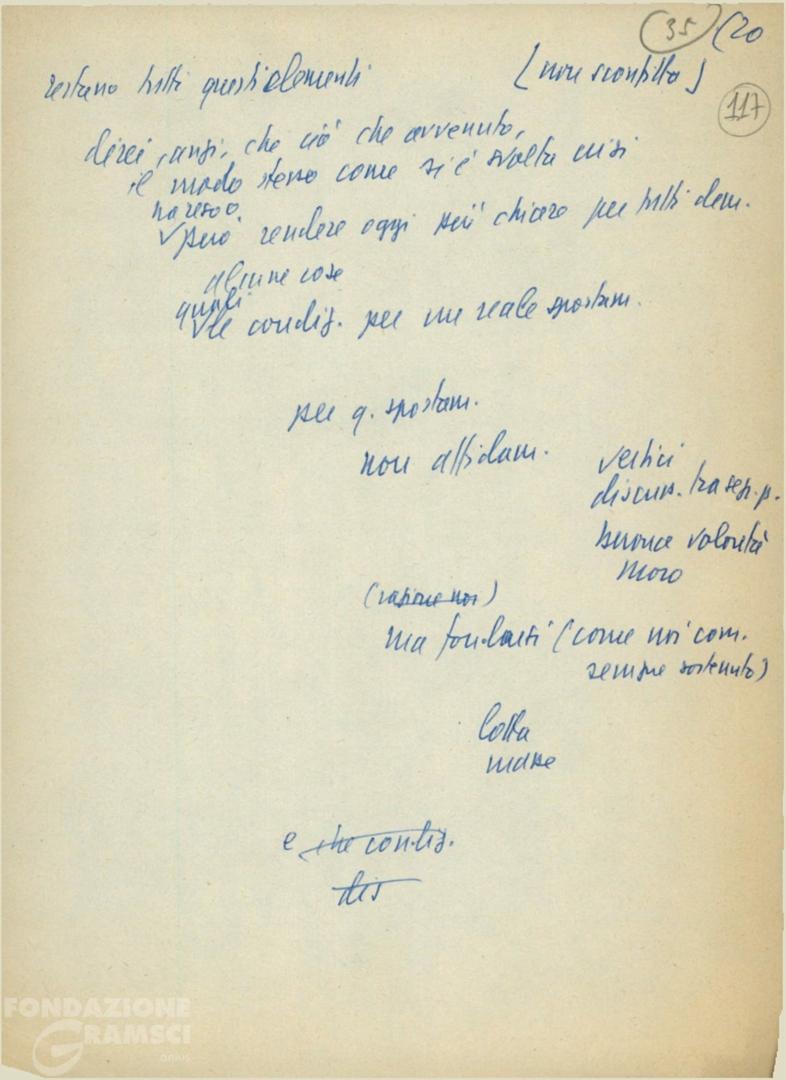 35 (20
restano tutti questi elementi (non sconfitta)
117
direi, anzi, che ciò che avvenuto,
il modo stesso come si è svolta crisi
può rendere oggi più chiaro per tutti dem.
alcune cose
quali
le condiz. per un reale spostam.
per q. spostam.
non affidam. vertici
discuss. tra segr. p.
buona volontà
Moro
ma fondarsi (come noi com.
sempre sostenuto)
lotta
masse
e che condiz.
dis
FONDAZIONE
GRAMSCI
onlus